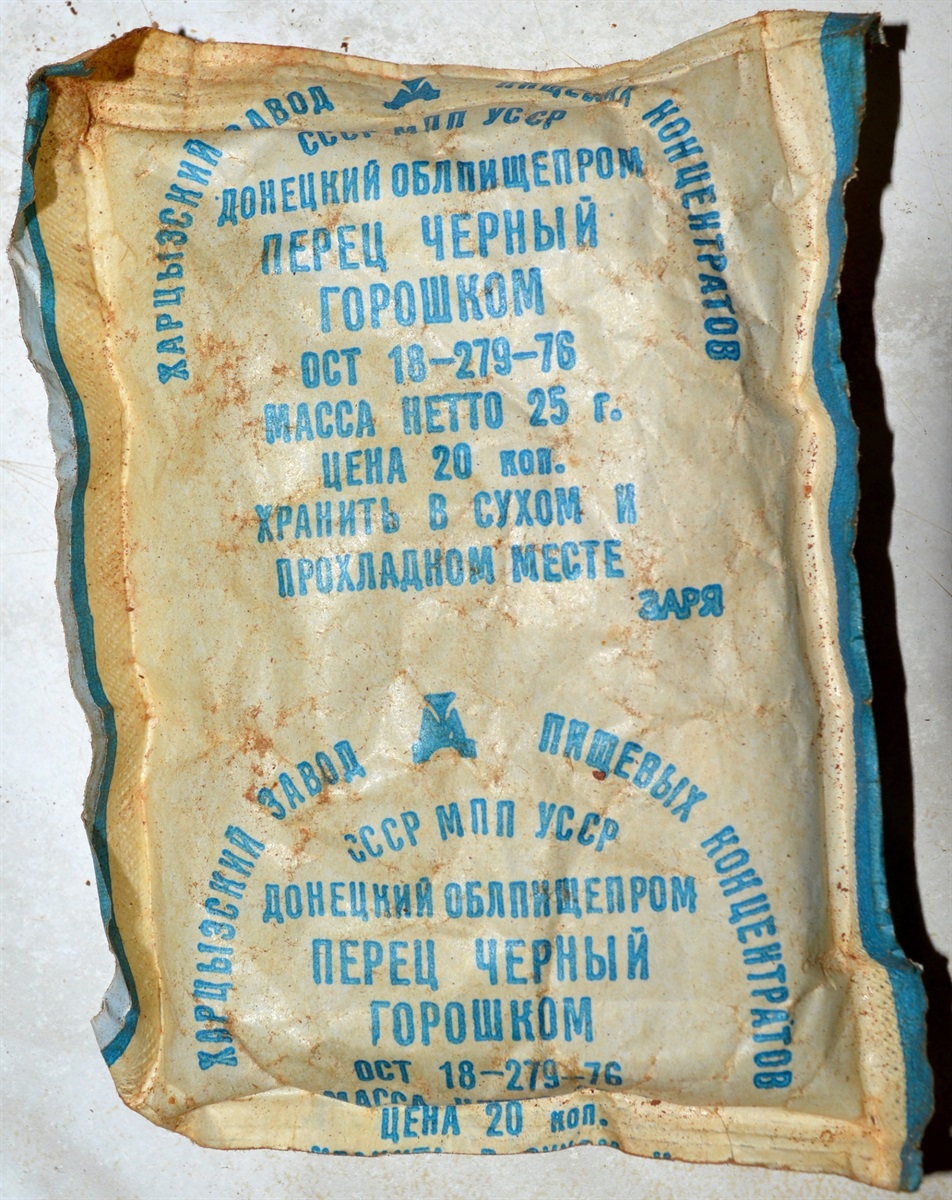 ХАРЦЫЗСКИЙ ЗАВОД ПИЩЕВЫХ КОНЦЕНТРАТОВ
СССР МПП УССР
ДОНЕЦКИЙ ОБЛПИЩЕПРОМ
ПЕРЕЦ ЧЕРНЫЙ
ГОРОШКОМ
ОСТ 18-279-76
МАССА НЕТТО 25 г.
ЦЕНА 20 коп.
ХРАНИТЬ В СУХОМ И
ПРОХЛАДНОМ МЕСТЕ
ЗАРЯ
ХАРЦЫЗСКИЙ ЗАВОД ПИЩЕВЫХ КОНЦЕНТРАТОВ
СССР МПП УССР
ДОНЕЦКИЙ ОБЛПИЩЕПРОМ
ПЕРЕЦ ЧЕРНЫЙ
ГОРОШКОМ
ОСТ 18-279-76
МАССА
ЦЕНА 20 коп.